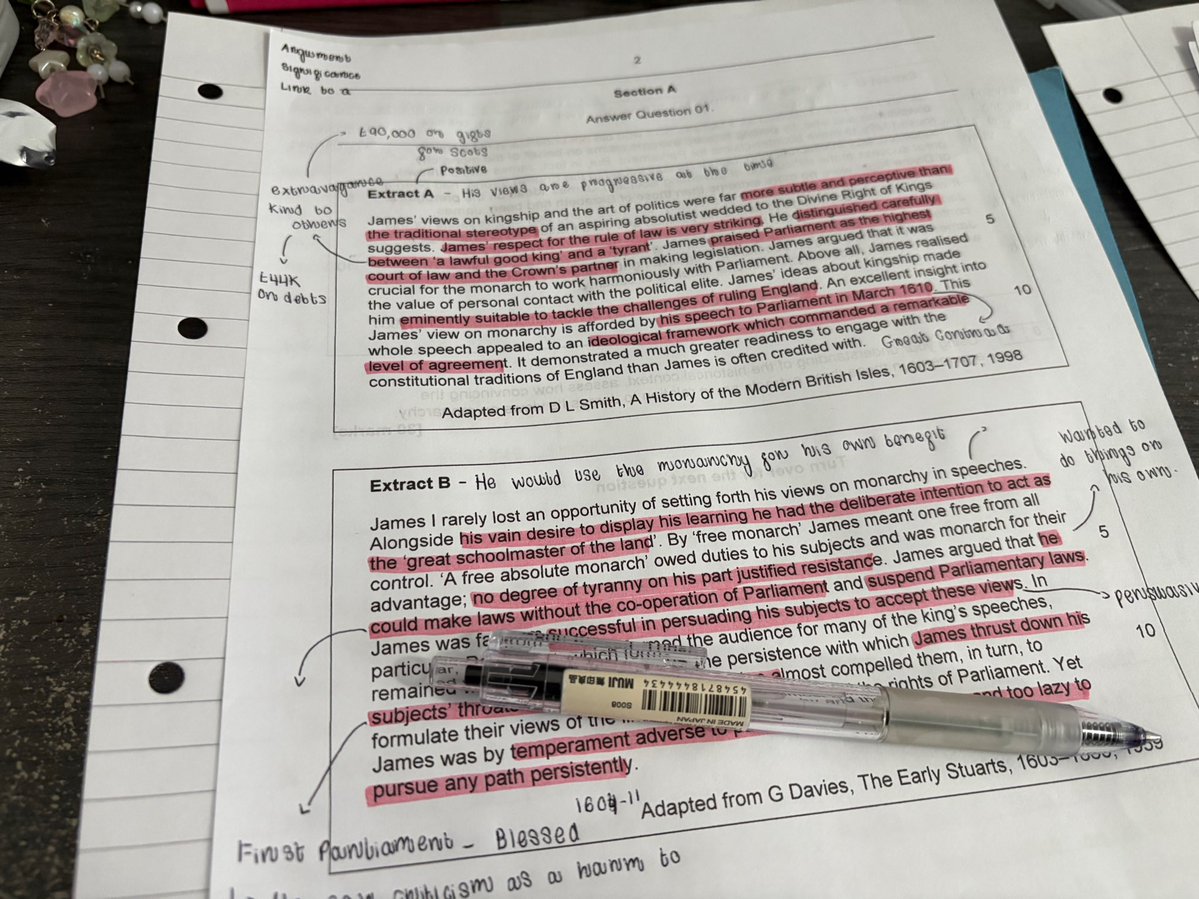 Argument
Significance
Link to Q
2
Section A
Answer Question 01.
£90,000 on gifts
for Scots
Positive
extravagance
Kind to
others
£44K
on debts
Extract A - His views are progressive at the time
James' views on kingship and the art of politics were far more subtle and perceptive than
the traditional stereotype of an aspiring absolutist wedded to the Divine Right of Kings
suggests. James' respect for the rule of law is very striking. He distinguished carefully
between 'a lawful good king' and a 'tyrant'. James praised Parliament as the highest
5
court of law and the Crown's partner in making legislation. James argued that it was
crucial for the monarch to work harmoniously with Parliament. Above all, James realised
the value of personal contact with the political elite. James' ideas about kingship made
him eminently suitable to tackle the challenges of ruling England. An excellent insight into
James' view on monarchy is afforded by his speech to Parliament in March 1610. This
10
whole speech appealed to an ideological framework which commanded a remarkable
level of agreement. It demonstrated a much greater readiness to engage with the
constitutional traditions of England than James is often credited with.
Great Contract
Adapted from D L Smith, A History of the Modern British Isles, 1603–1707, 1998
Extract B - He would use the monarchy for his own benefit
Wanted to
do things on
his own.
James I rarely lost an opportunity of setting forth his views on monarchy in speeches.
Alongside his vain desire to display his learning he had the deliberate intention to act as
the 'great schoolmaster of the land'. By 'free monarch' James meant one free from all
control. 'A free absolute monarch' owed duties to his subjects and was monarch for their
5
advantage; no degree of tyranny on his part justified resistance. James argued that he
could make laws without the co-operation of Parliament and suspend Parliamentary laws.
James was far successful in persuading his subjects to accept these views. In
the audience for many of the king's speeches,
the persistence with which James thrust down his
10
remained almost compelled them, in turn, to
subjects' throats rights of Parliament. Yet
formulate their views of the and too lazy to
James was by temperament adverse to
pursue any path persistently.
1604-11
Adapted from G Davies, The Early Stuarts, 1603–
First Parliament - Blessed
criticism as a harm to
MUJI 無印良品
4548718444434
S008
MADE IN JAPAN